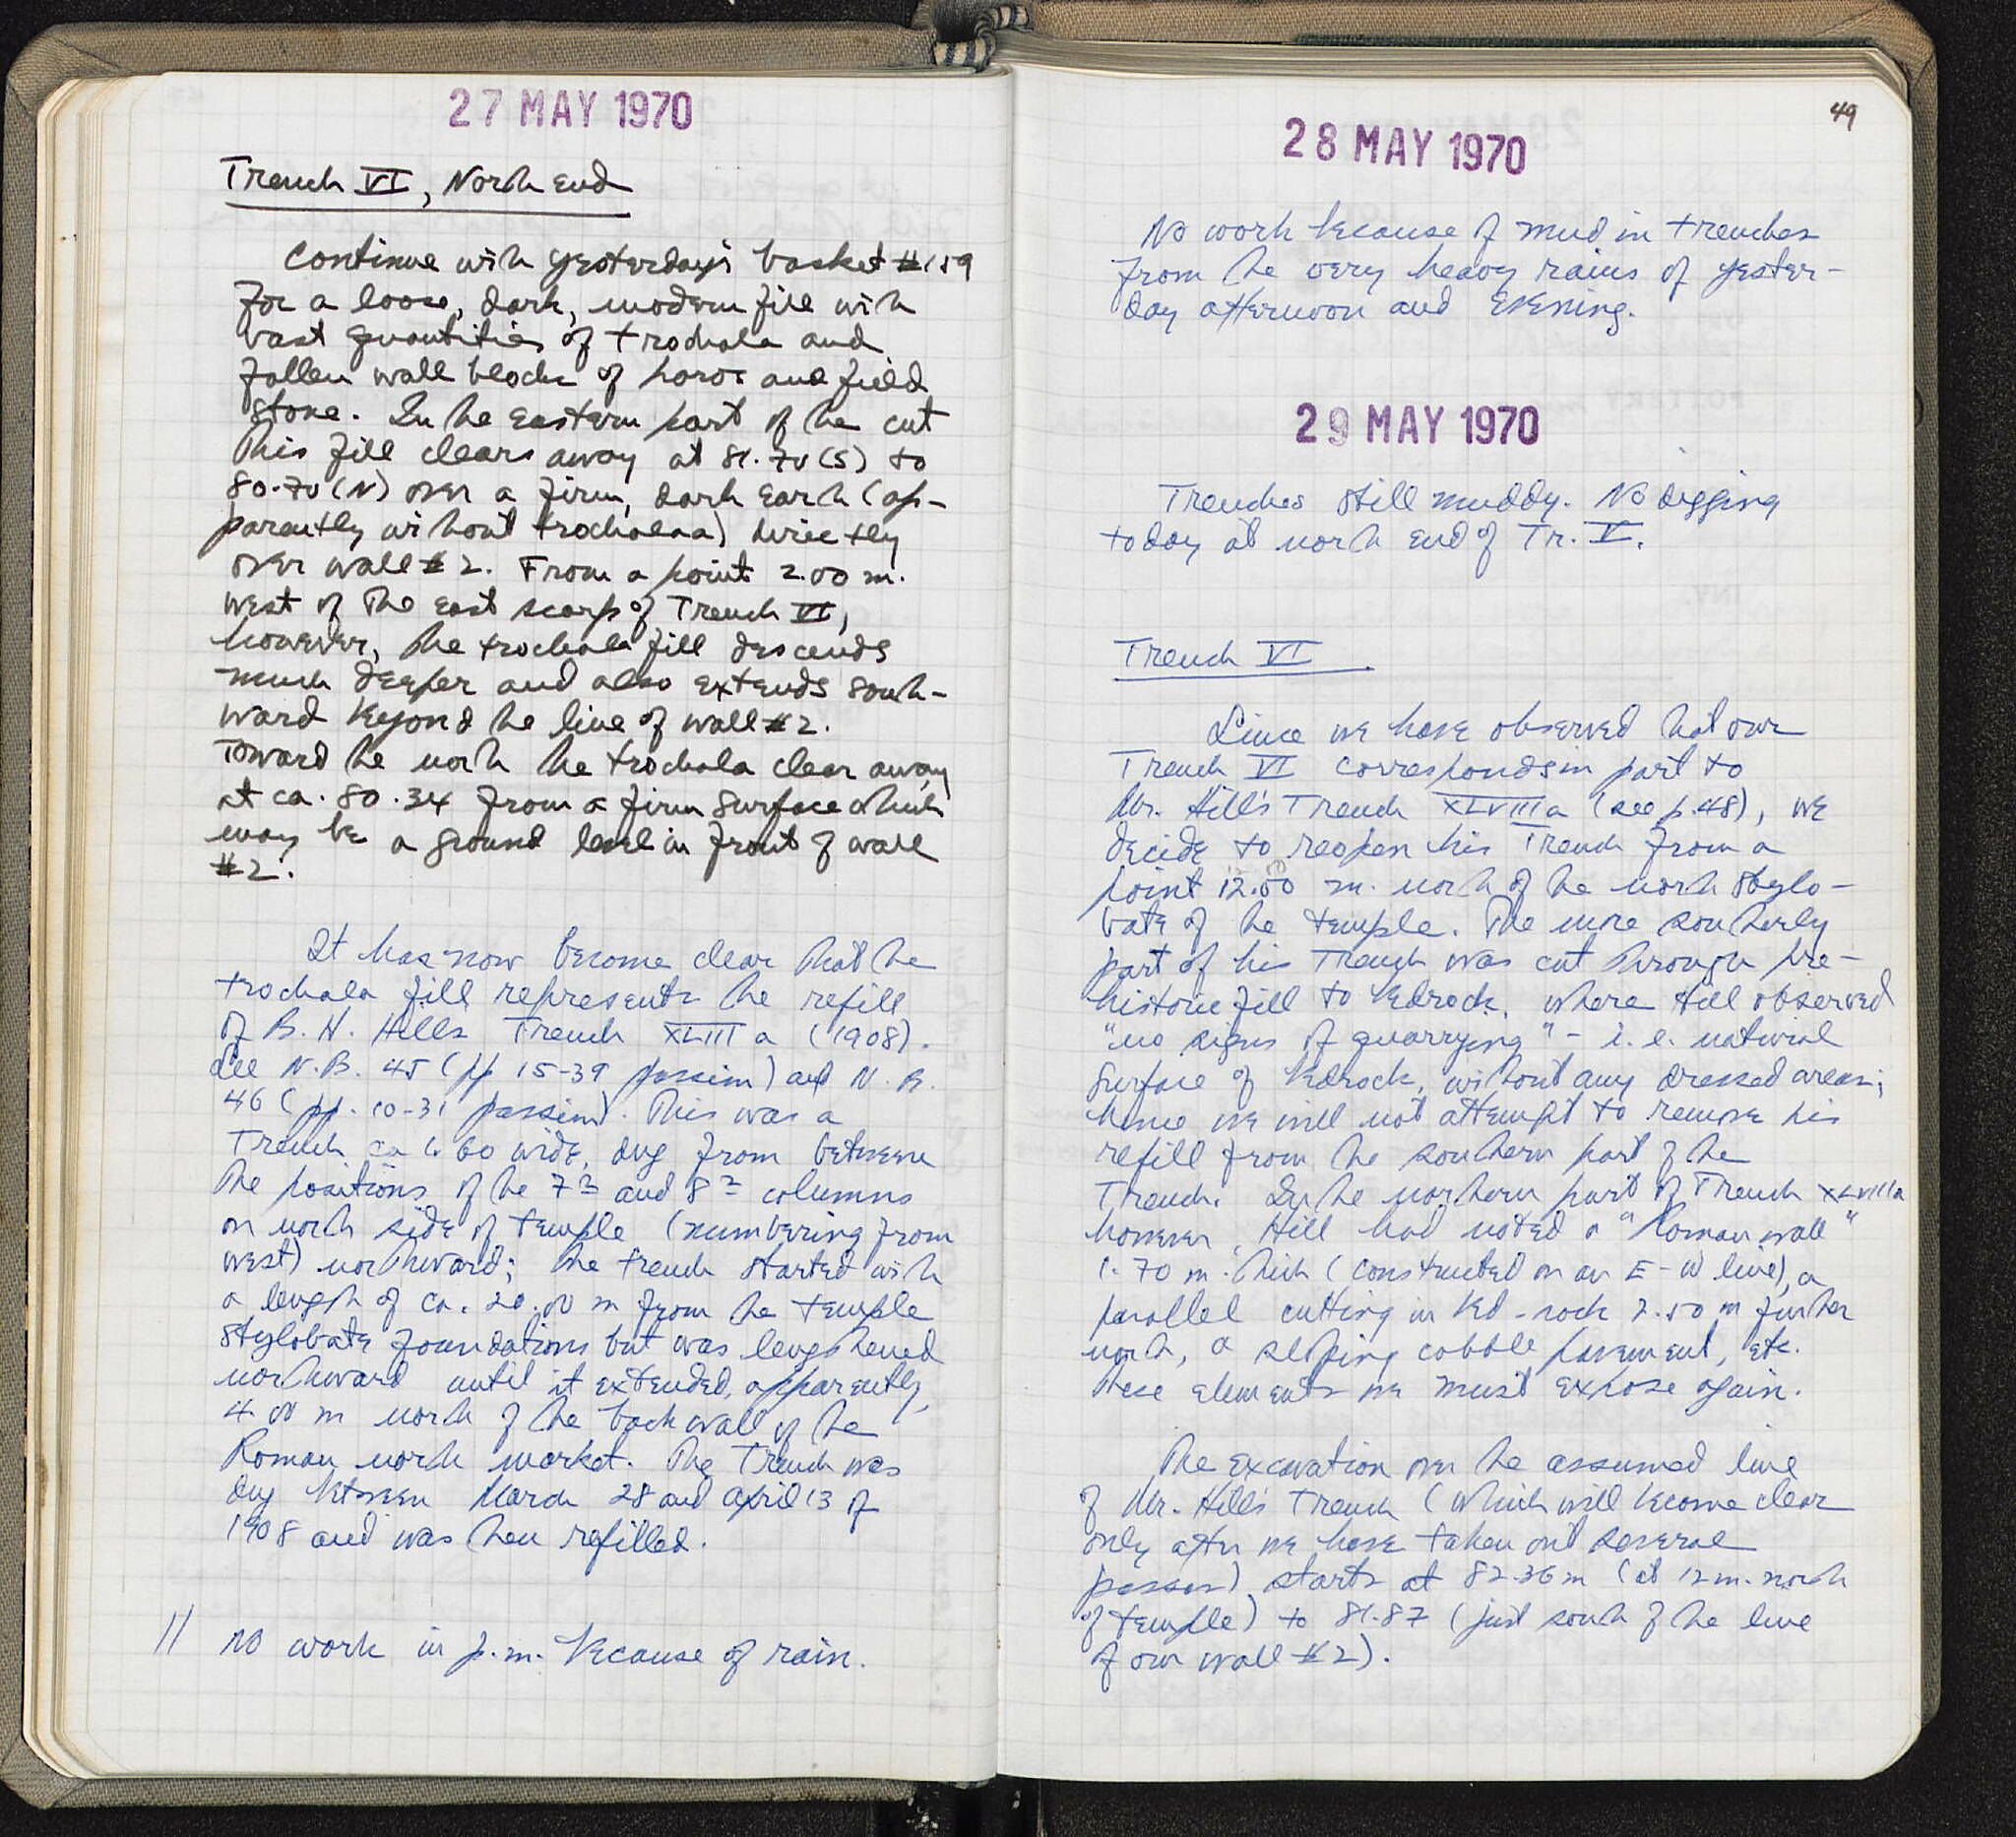 27 MAY 1970
Trench VI, North end
Continue with yesterday's basket #159
for a loose, dark, modern fill with
vast quantities of trochala and
fallen wall blocks of poros and field
stone. In the eastern part of the cut
this fill clears away at 81.70 (S) to
80.70 (N) over a firm, dark earth (ap-
parently without trochala) directly
over wall #2. From a point 2.00 m.
west of the east scarp of Trench VI,
however, the trochala fill descends
much deeper and also extends south-
ward beyond the line of wall #2.
Toward the north the trochala clear away
at ca. 80.34 from a firm surface which
may be a ground level in front of wall
#2.
It has now become clear that the
trochala fill represents the refill
of B. H. Hill's Trench XLIII a (1908).
See N.B. 45 (pp 15-39 passim) and N.B.
46 (pp. 10-31 passim). This was a
Trench ca 1.60 wide, dug from between
the positions of the 7th and 8th columns
on north side of temple (numbering from
west) northward; the trench started with
a length of ca. 20.00 m from the temple
stylobate foundations but was lengthened
northward until it extended, apparently,
4.00 m north of the back wall of the
Roman north market. The Trench was
dug between March 28 and April 13 of
1908 and was then refilled.
// No work in p.m. because of rain.
49
28 MAY 1970
No work because of mud in trenches
from the very heavy rains of yester-
day afternoon and evening.
29 MAY 1970
Trenches still muddy. No digging
today at north end of Tr. V.
Trench VI
Since we have observed that our
Trench VI corresponds in part to
Mr. Hill's Trench XLVIII a (see p. 48), we
decide to reopen his Trench from a
point 12.00 m. north of the north stylo-
bate of the temple. The more southerly
part of his Trench was cut through pre-
historic fill to bedrock, where Hill observed
"no signs of quarrying" - i.e. natural
surface of bedrock, without any dressed areas;
hence we will not attempt to remove his
refill from the southern part of the
Trench. In the northern part of Trench XLVIII a
however, Hill had noted a "Roman wall"
1.70 m. thick (constructed on an E-W line), a
parallel cutting in bed-rock 2.50 m further
north, a sloping cobble pavement, etc.
These elements we must expose again.
The excavation over the assumed line
of Mr. Hill's Trench (which will become clear
only after we have taken out several
passes) starts at 82.36 m (at 12 m. north
of temple) to 81.87 (just south of the line
of our wall #2).